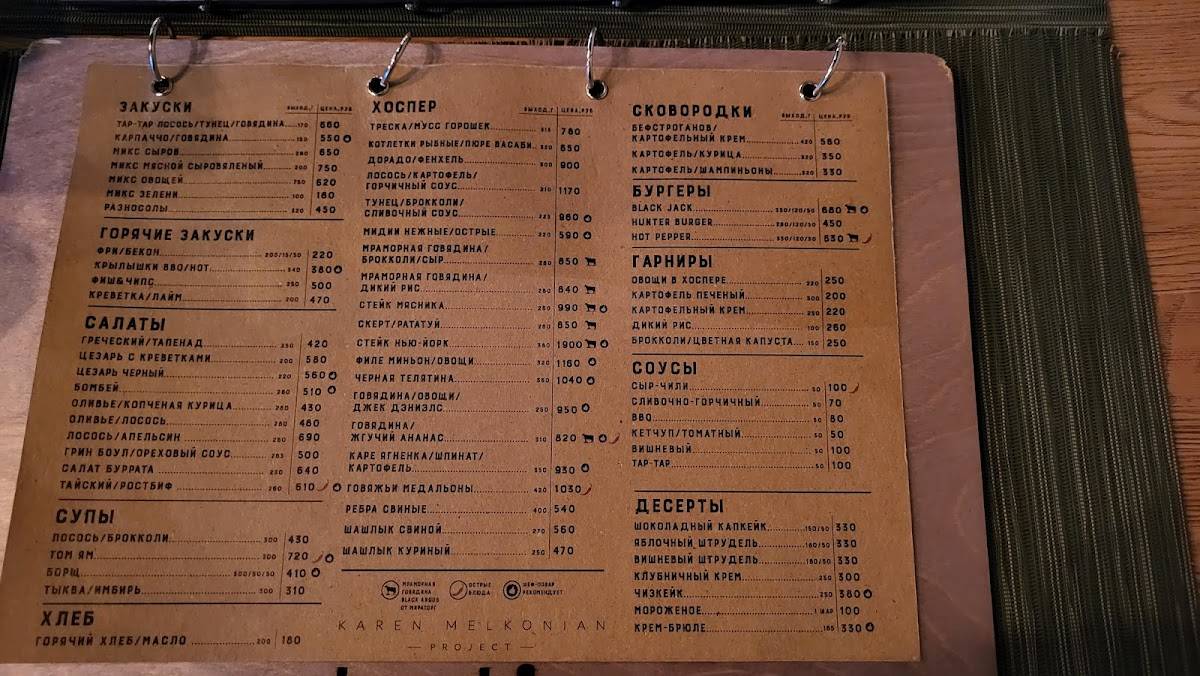 ЗАКУСКИ ВЫХОД,Г ЦЕНА,РУБ
ТАР-ТАР ЛОСОСЬ/ТУНЕЦ/ГОВЯДИНА 170 660
КАРПАЧЧО/ГОВЯДИНА 550
МИКС СЫРОВ 650
МИКС МЯСНОЙ СЫРОВЯЛЕНЫЙ 200 750
МИКС ОВОЩЕЙ 620
МИКС ЗЕЛЕНИ 100 160
РАЗНОСОЛЫ 320 450
ГОРЯЧИЕ ЗАКУСКИ
ФРИ/БЕКОН 200/15/50 220
КРЫЛЫШКИ BBQ/HOT 340 380
ФИШ&ЧИПС 250 500
КРЕВЕТКА/ЛАЙМ 200 470
САЛАТЫ
ГРЕЧЕСКИЙ/ТАПЕНАД 250 420
ЦЕЗАРЬ С КРЕВЕТКАМИ 200 580
ЦЕЗАРЬ ЧЕРНЫЙ 220 560
БОМБЕЙ 260 510
ОЛИВЬЕ/КОПЧЕНАЯ КУРИЦА 280 430
ОЛИВЬЕ/ЛОСОСЬ 280 480
ЛОСОСЬ/АПЕЛЬСИН 260 690
ГРИН БОУЛ/ОРЕХОВЫЙ СОУС 285 500
САЛАТ БУРРАТА 250 640
ТАЙСКИЙ/РОСТБИФ 260 610
СУПЫ
ЛОСОСЬ/БРОККОЛИ 300 430
ТОМ ЯМ 300 720
БОРЩ 300/50/50 410
ТЫКВА/ИМБИРЬ 300 310
ХЛЕБ
ГОРЯЧИЙ ХЛЕБ/МАСЛО 200 180
ХОСПЕР ВЫХОД,Г ЦЕНА,РУБ
ТРЕСКА/МУСС ГОРОШЕК 315 760
КОТЛЕТКИ РЫБНЫЕ/ПЮРЕ ВАСАБИ 320 650
ДОРАДО/ФЕНХЕЛЬ 300 900
ЛОСОСЬ/КАРТОФЕЛЬ/
ГОРЧИЧНЫЙ СОУС 310 1170
ТУНЕЦ/БРОККОЛИ/
СЛИВОЧНЫЙ СОУС 225 960
МИДИИ НЕЖНЫЕ/ОСТРЫЕ 220 590
МРАМОРНАЯ ГОВЯДИНА/
БРОККОЛИ/СЫР 280 850
МРАМОРНАЯ ГОВЯДИНА/
ДИКИЙ РИС 280 840
СТЕЙК МЯСНИКА 280 990
СКЕРТ/РАТАТУЙ 280 850
СТЕЙК НЬЮ-ЙОРК 360 1900
ФИЛЕ МИНЬОН/ОВОЩИ 320 1160
ЧЕРНАЯ ТЕЛЯТИНА 350 1040
ГОВЯДИНА/ОВОЩИ/
ДЖЕК ДЭНИЭЛС 250 950
ГОВЯДИНА/
ЖГУЧИЙ АНАНАС 310 820
КАРЕ ЯГНЕНКА/ШПИНАТ/
КАРТОФЕЛЬ 350 930
ГОВЯЖЬИ МЕДАЛЬОНЫ 420 1030
РЕБРА СВИНЫЕ 400 540
ШАШЛЫК СВИНОЙ 270 560
ШАШЛЫК КУРИНЫЙ 250 470
МРАМОРНАЯ
ГОВЯДИНА
BLACK ANGUS
ОТ МИРАТОРГ
ОСТРЫЕ
БЛЮДА
ШЕФ-ПОВАР
РЕКОМЕНДУЕТ
KAREN MELKONIAN
PROJECT
СКОВОРОДКИ ВЫХОД,Г ЦЕНА,РУБ
БЕФСТРОГАНОВ/
КАРТОФЕЛЬНЫЙ КРЕМ 420 560
КАРТОФЕЛЬ/КУРИЦА 320 350
КАРТОФЕЛЬ/ШАМПИНЬОНЫ 320 330
БУРГЕРЫ
BLACK JACK 350/120/50 680
HUNTER BURGER 280/120/50 450
HOT PEPPER 330/120/50 630
ГАРНИРЫ
ОВОЩИ В ХОСПЕРЕ 220 250
КАРТОФЕЛЬ ПЕЧЕНЫЙ 300 200
КАРТОФЕЛЬНЫЙ КРЕМ 250 220
ДИКИЙ РИС 100 260
БРОККОЛИ/ЦВЕТНАЯ КАПУСТА 150 250
СОУСЫ
СЫР-ЧИЛИ 50 100
СЛИВОЧНО-ГОРЧИЧНЫЙ 50 70
BBQ 50 80
КЕТЧУП/ТОМАТНЫЙ 50 50
ВИШНЕВЫЙ 50 100
ТАР-ТАР 50 100
ДЕСЕРТЫ
ШОКОЛАДНЫЙ КАПКЕЙК 150/50 330
ЯБЛОЧНЫЙ ШТРУДЕЛЬ 180/50 330
ВИШНЕВЫЙ ШТРУДЕЛЬ 180/50 330
КЛУБНИЧНЫЙ КРЕМ 250 300
ЧИЗКЕЙК 250 380
МОРОЖЕНОЕ 1 ШАР 100
КРЕМ-БРЮЛЕ 185 330